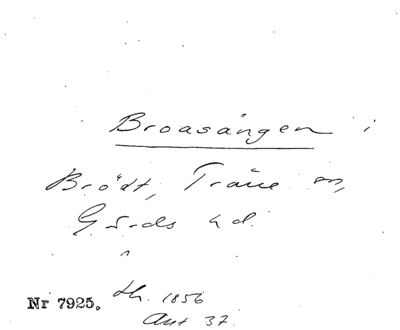 Broasången i
Brödt, Träne sn,
Gärds hd.
Nr 7925. Lh. 1856
Ant 37.